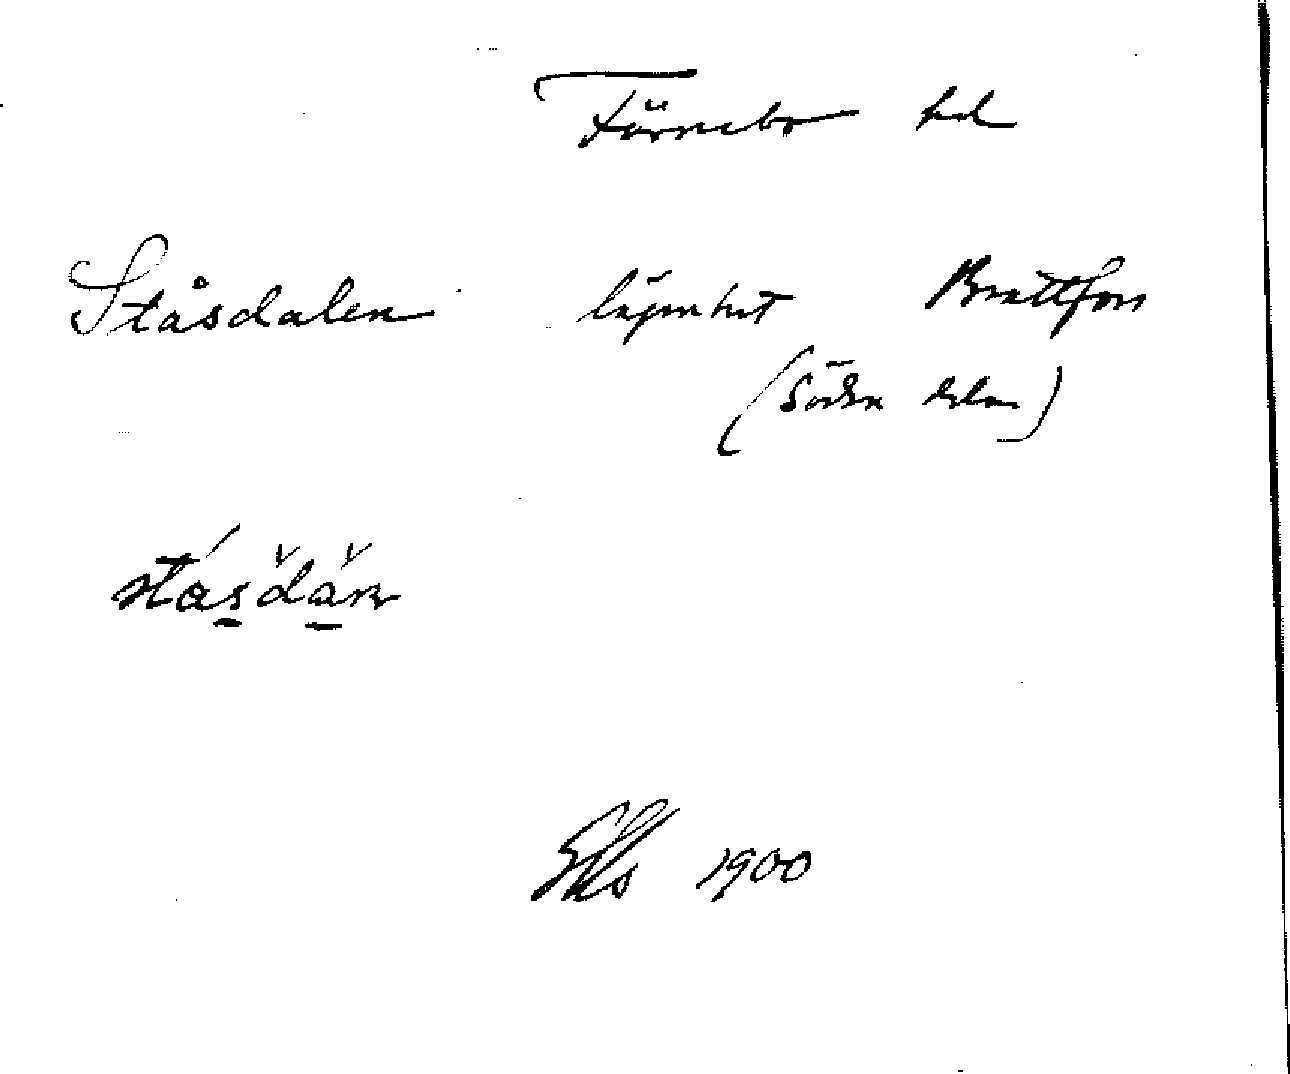 Färnebo hd
Ståsdalen lägenhet Brattfors
(Södra delen)
1900